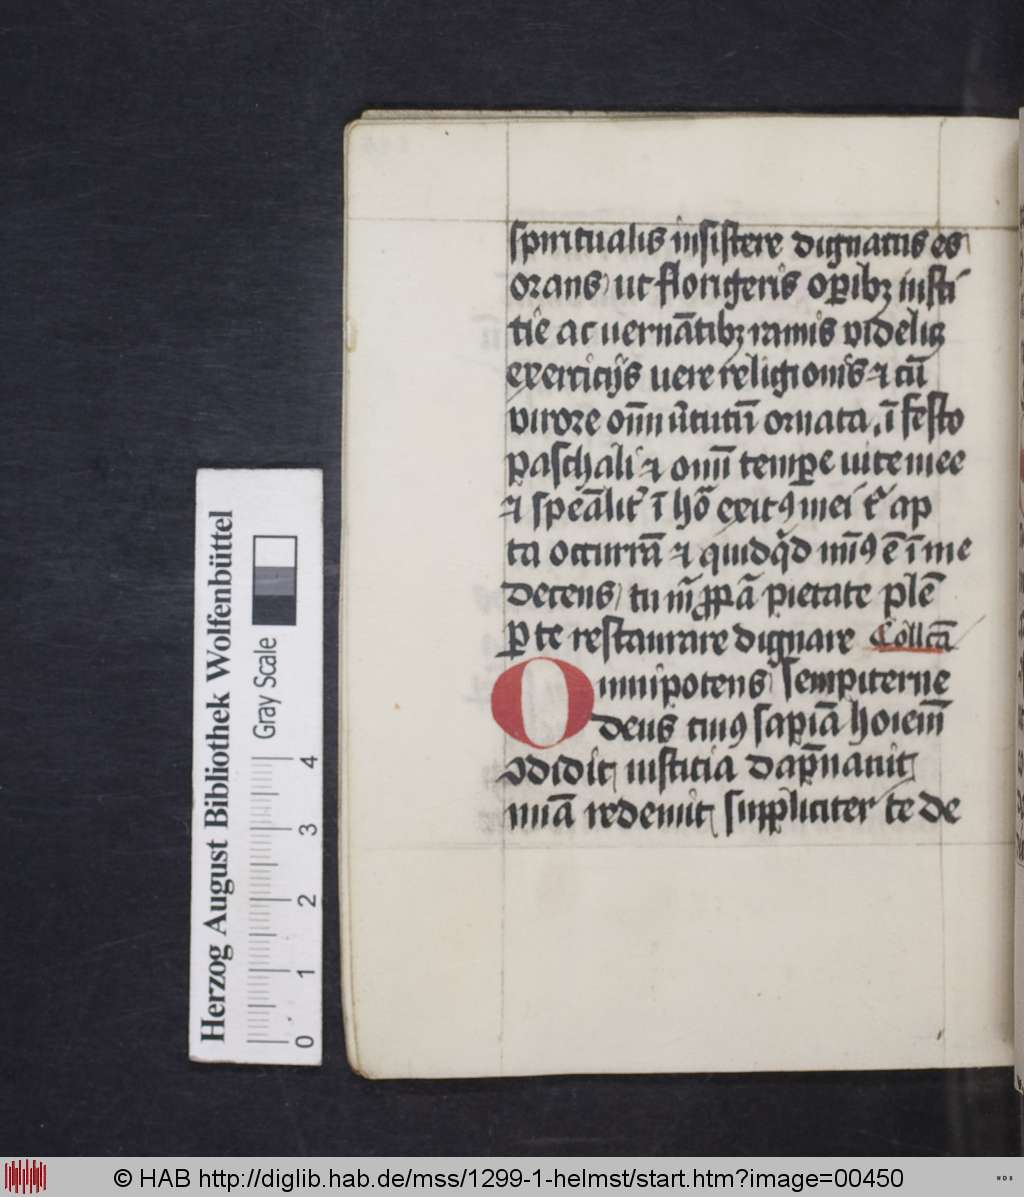 spiritualis insistere dignatus es
orans ut florigeris op̲ibꝫ iusti
tie ac vernātibꝫ ramis videlicꝫ
exercicijs vere religionis ⁊ cū
virore oīm v̓tutū ornata ī festo
paschali ⁊ omī temp̲e vite mee
⁊ spēalit̓ ī hō exitꝯ mei t̓ ap
ta occurrā ⁊ quidq̄d mīꝯ ē ī me
decens tu pietate plē
per te restaurare dignare Coll̄cā
Omnipotens sempiterne
deus cuiꝯ sapīa hoīem̄
ꝯdidit iusticia dāpnauit
mīa redemit suppliciter te de
Herzog August Bibliothek Wolfenbüttel
Gray Scale
0 1 2 3 4
© HAB http://diglib.hab.de/mss/1299-1-helmst/start.htm?image=00450